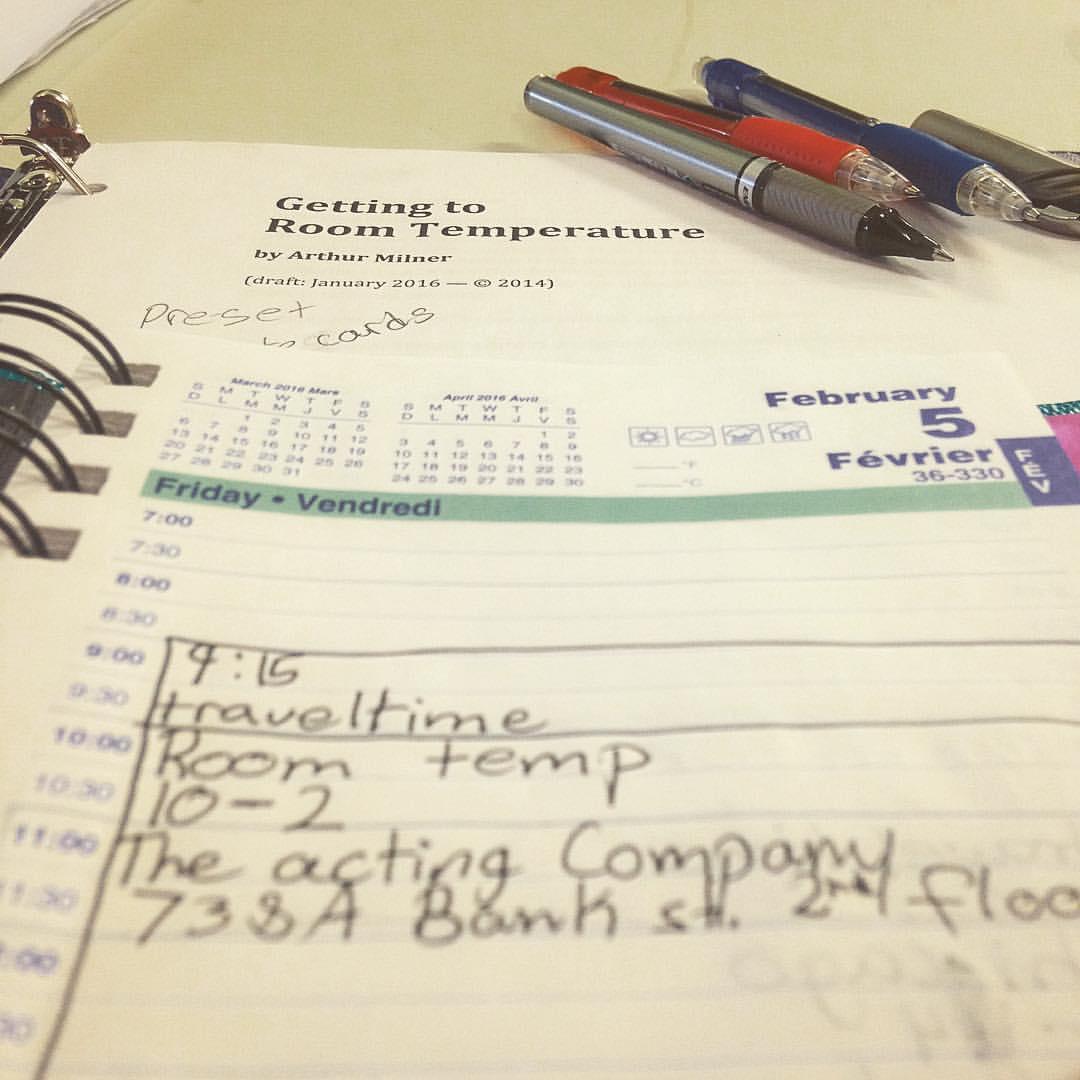 Getting to
Room Temperature
by Arthur Milner
(draft: January 2016 — © 2014)
Pre-set
↳ cards
March 2016 Mars
S M T W T F S
D L M M J V S
1 2 3 4 5
6 7 8 9 10 11 12
13 14 15 16 17 18 19
20 21 22 23 24 25 26
27 28 29 30 31
April 2016 Avril
S M T W T F S
D L M M J V S
1 2
3 4 5 6 7 8 9
10 11 12 13 14 15 16
17 18 19 20 21 22 23
24 25 26 27 28 29 30
°F
°C
February
5
Février
36-330
FÉV
Friday • Vendredi
7:00
7:30
8:00
8:30
9:00 9:15
9:30 traveltime
10:00 Room temp
10:30 10-2
11:00 The acting Company
11:30 738A Bank st. 2nd floo
:00
30